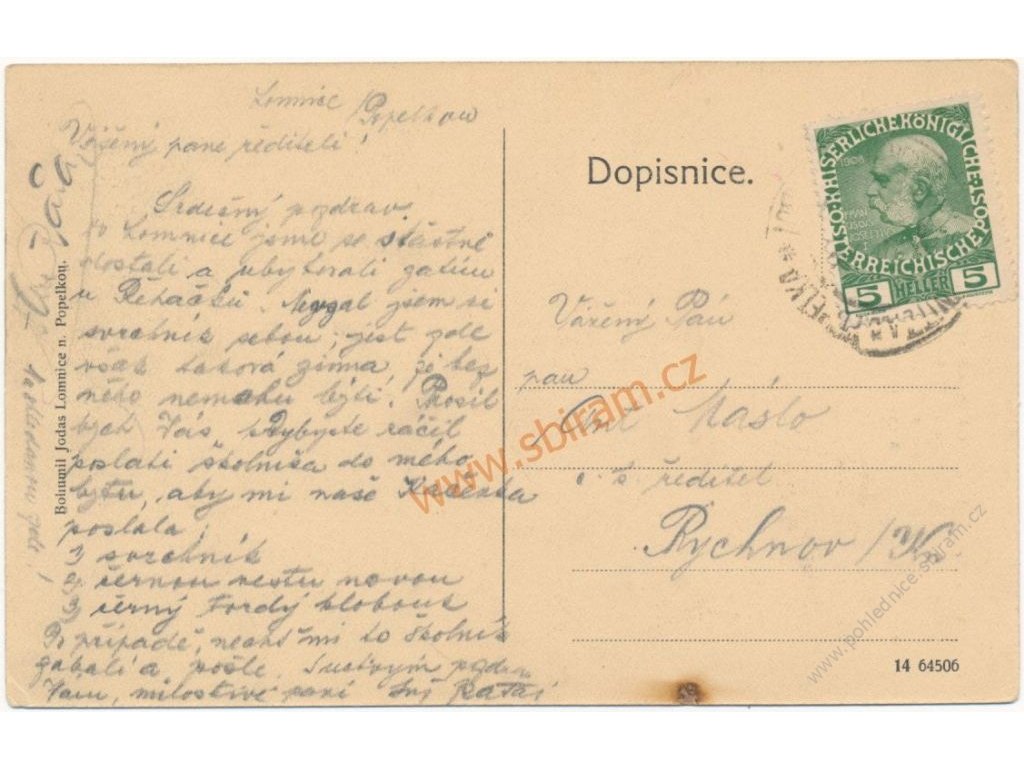 Lomnice / Popelkou
Vážený pane řediteli!
Srdečný pozdrav.
V Lomnici jsme se šťastně
dostali a ubytovali zatím
u Řeháčků. jsem si
svrchník sebou; jest zde
však taková zima, že bez
něho nemohu býti. Prosil
bych Vás, kdybyste ráčil
poslati školníka do mého
bytu, aby mi naše
poslala:
1) svrchník
2) černou vestu novou
3) černý tvrdý klobouk
Po případě, nechť mi to školník
zabalí a pošle. pozdrav
Vám, milostivé paní
Bohumil Jodas Lomnice n. Popelkou.
Dopisnice.
ÖSTERREICHISCHE POST
KAISERLICHE KÖNIGLICHE
1908
5 HELLER 5
Vážený Pán
pan
Ant Máslo
c. š. ředitel
Rychnov /Kn
14 64506
www.sbiram.cz
www.pohlednice.sbiram.cz